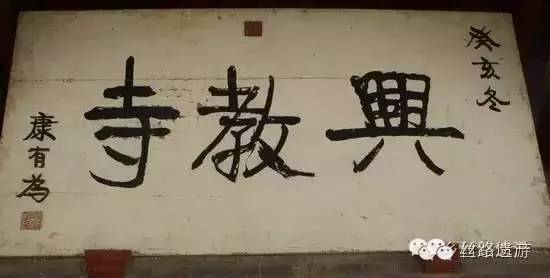 癸亥冬
興教寺
康有為
丝路遗游